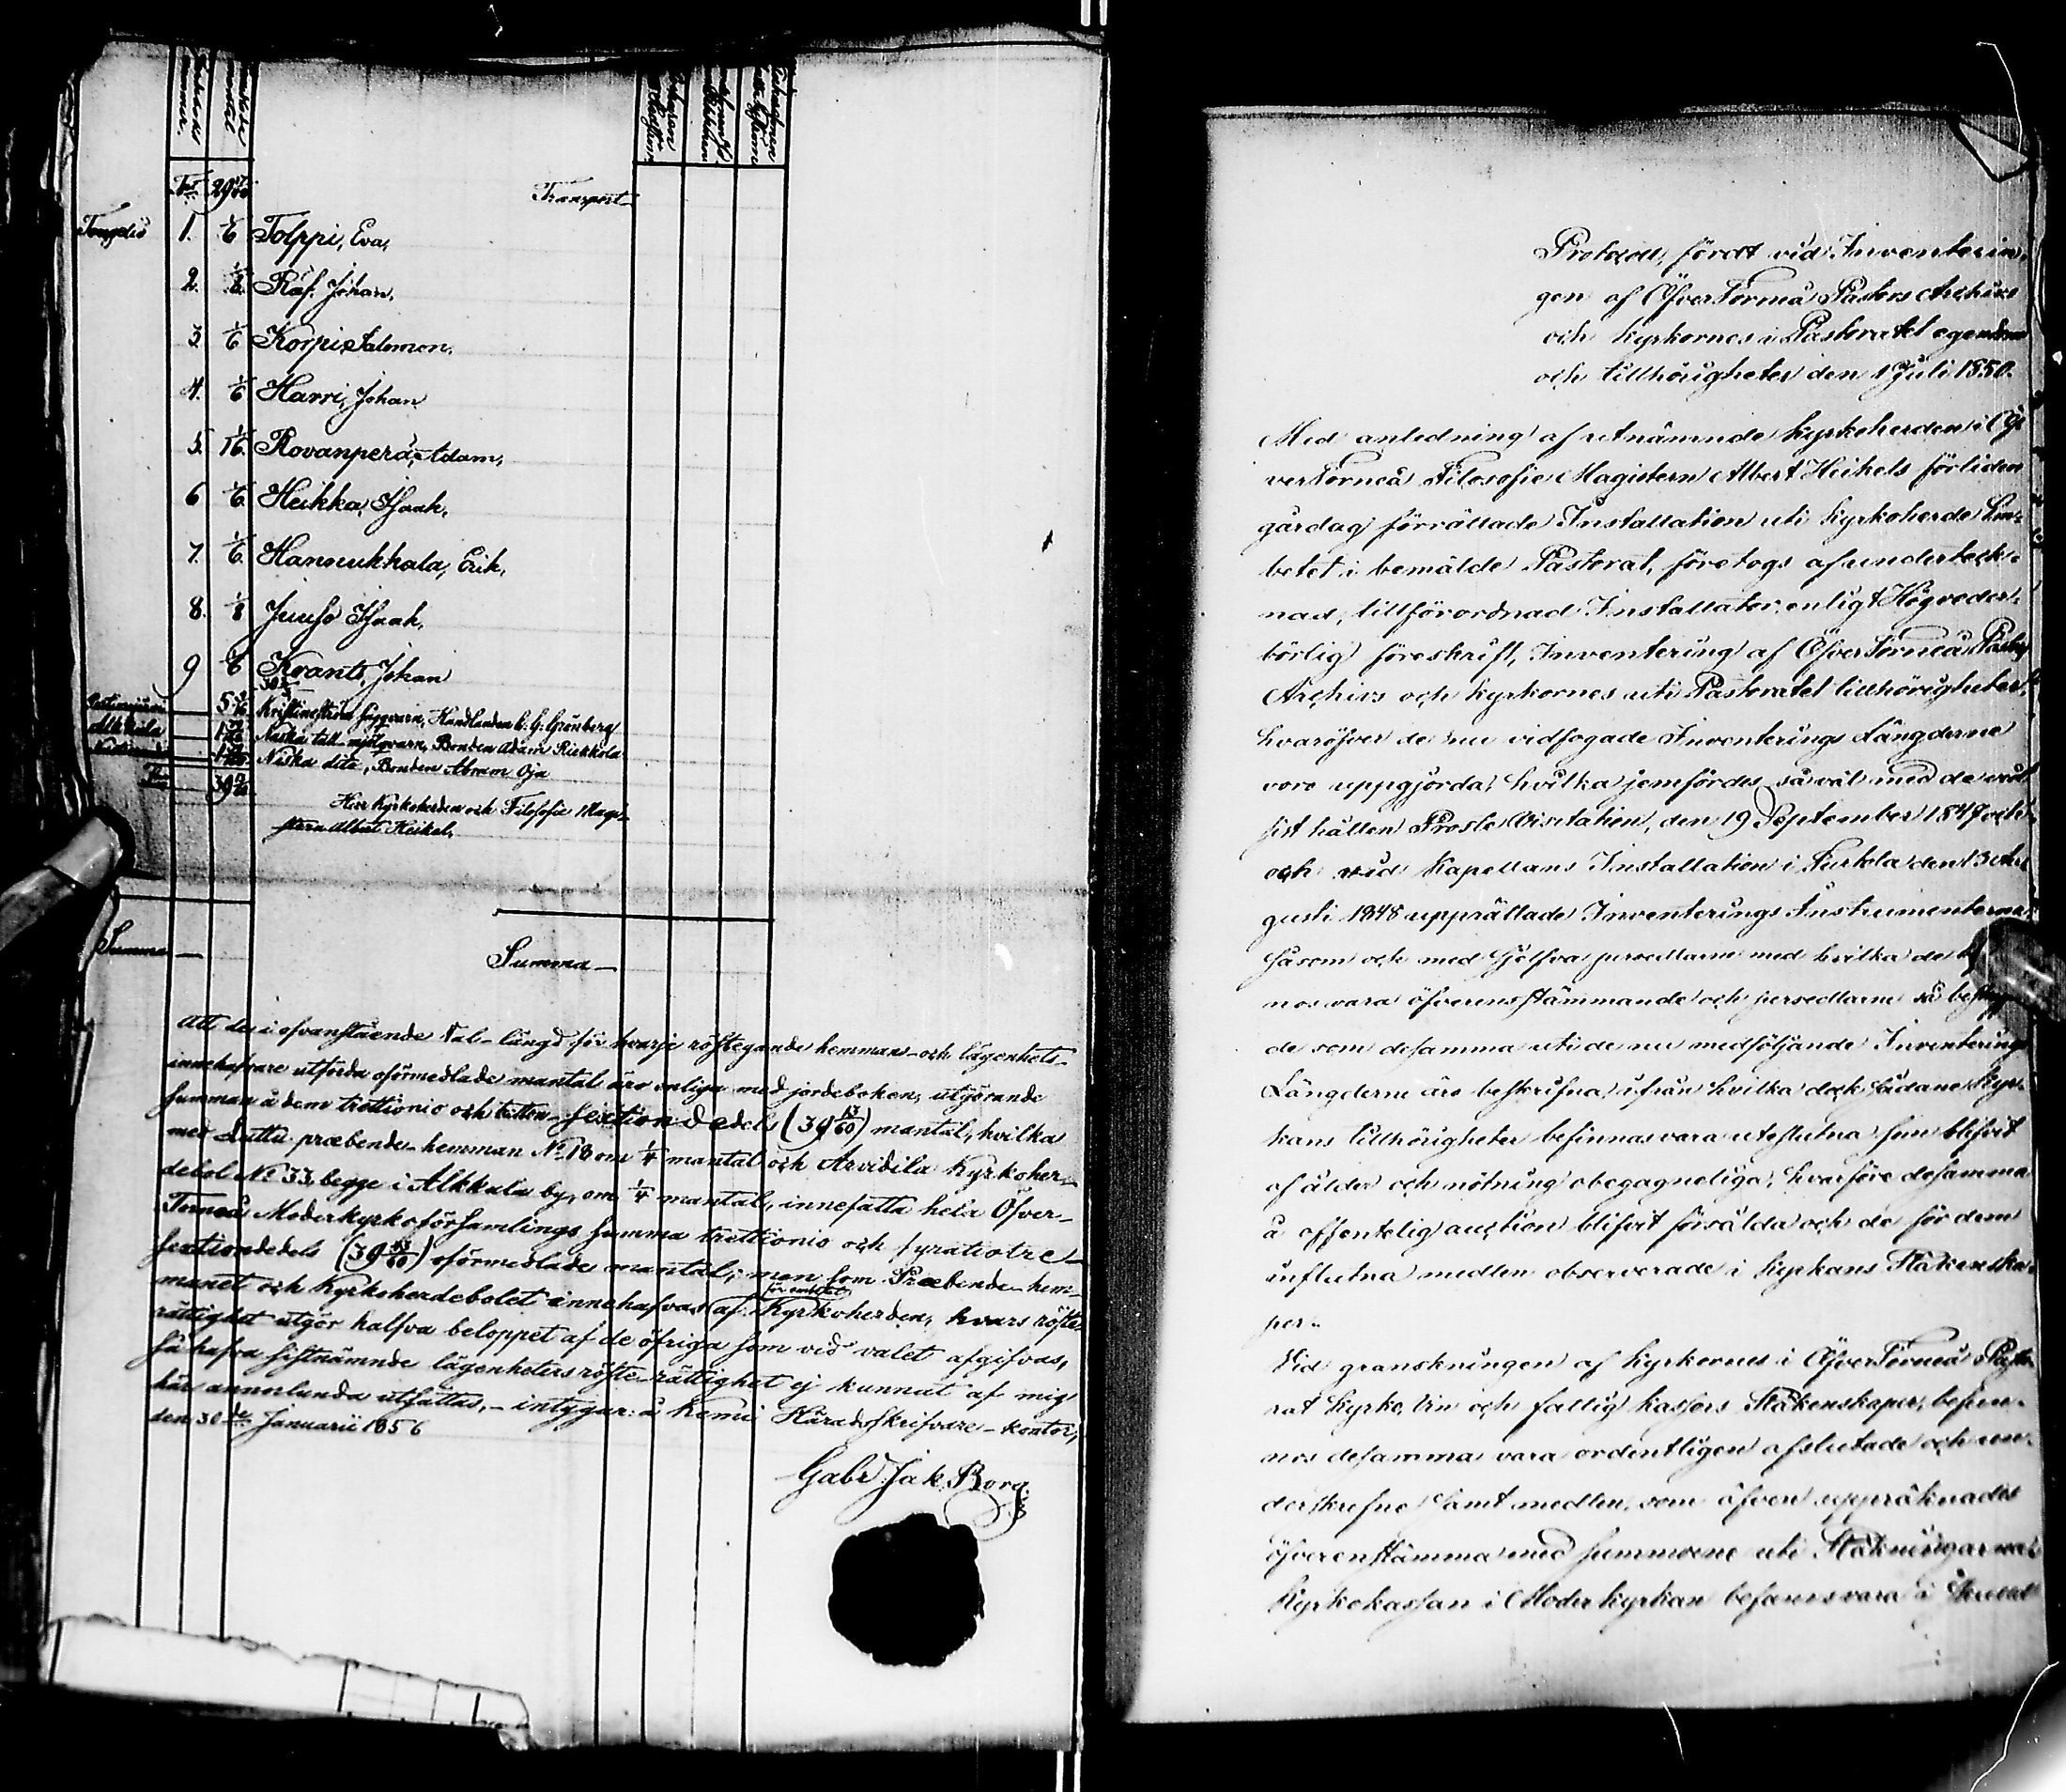 Transport
Tengeliö 1. 1/6 Tolppi, Eva,
2. 1/8 Räf, Johan,
3. 1/6 Korpi, Salomon,
4. 1/6 Harri, Johan
5. 1/16 Rovanperä, Adam,
6 1/6 Heikka, Isaak,
7. 1/6 Hannukkala, Erik,
8. 1/8 Juuso Isaak,
9 1/6 Krants, Johan
Kristineströms sågqvarn, Handlanden C. G. Grünberg
Alkkula Niska tull-mjölqvarn, Bonden Adam Rickkola
Niska dito, Bonden Abram Oja
Herr Kyrkoherden och Filosofie Magi-
stern Albert Heikel,
Summa — Summa —
Att de i ofvanstående Val-längd för hvarje röstegande hemmans- och lägenhets-
innehafvare utförda oförmedlade mantal äro enliga med jordeboken, utgörande
summan å dem trettionio och tretton-sextiondedels (39 13/60) mantal, hvilka
med Lutta præbende-hemman No 18 om 1/4 mantal och Arvidila Kyrkoher-
debol No 33, begge i Alkkula by, om 1/4 mantal, innefatta hela Öfver-
Torneå Moderkyrkoförsamlings summa trettionio och fyratiotre-
sextiondedels (39 43/60) oförmedlade mantal; men som Præbende-hem-
manet och Kyrkoherdebolet innehafvas af Kyrkoherden, hvars röste-
rättighet utgör halfva beloppet af de öfriga som vid valet afgifvas,
så hafva sistnämnde lägenheters röste-rättighet ej kunnat af mig
här annorlunda utsättas, - intygar: å Kemi Häradsskrifvare-kontor,
den 30de Januarii 1856
Gabr. Jak. Borg.
Protocoll, fördt vid Inventerin-
gen af ÖfverTorneå Pastors Archive
och Kyrkornes i Pastoratet egendom
och tillhörigheter den 1 Juli 1850.
Med anledning af utnämnde Kyrkoherden i Öf-
verTorneå Filosofie Magistern Albert Heikels förliden
gårdag förrättade Installation uti Kyrkoherde Em-
betet i bemälde Pastorat, företogs af underteck-
nad, tillförordnad Installator, enligt Högveder-
börlig föreskrift, Inventering af ÖfverTorneå Pastors
Archivs och Kyrkornes uti Pastoratet tillhörigheter,
hvaröfver de nu vidfogade Inventerings Längderne
voro uppgjorda, hvilka jemfördes så väl med de vid
sist hållen Prosle Visitation, den 19 September 1847 och
och vid Kapellans Installation i Turtola den 13 Au-
gusti 1848 upprättade Inventerings Instrumenterne,
såsom och med sjelfva persedlarne med hvilka de
nos vara öfverensstämmande och persedlarne så
de som desamma uti de nu medföljande Inventerings
Längderne äro beskrifna, ifrån hvilka dock sådane Kyr-
kans tillhörigheter befinnas vara uteslutna som blifvit
af ålder och nötning obegagneliga, hvarföre desamma
å offentelig auction blifvit försålda och de för dem
influtna medlen observerade i Kyrkans Räkenska-
per.
Vid granskningen af Kyrkornes i ÖfverTorneå Pasto-
rat Kyrko, Vin och fattig kassors Räkenskaper, befun-
nos desamma vara ordentligen afslutade och un-
derskrefne samt medlen, som äfven uppräknades
öfverenstämma med summorne uti Räkningarna.
Kyrkokassan i Moderkyrkan befanns vara i